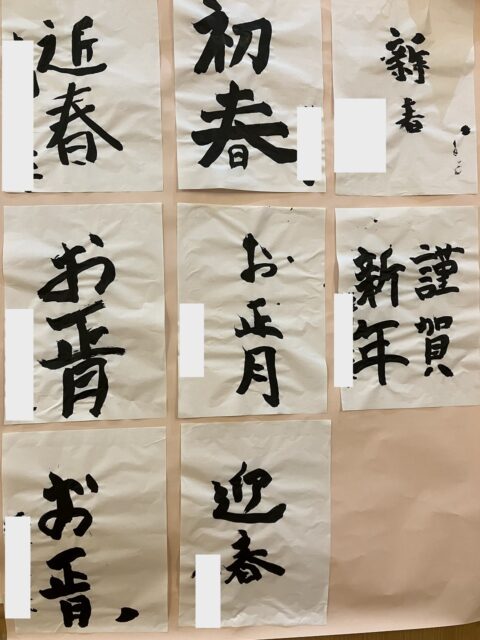 近春
初春
新春
お正月
お正月
謹賀
新年
お正月
迎春